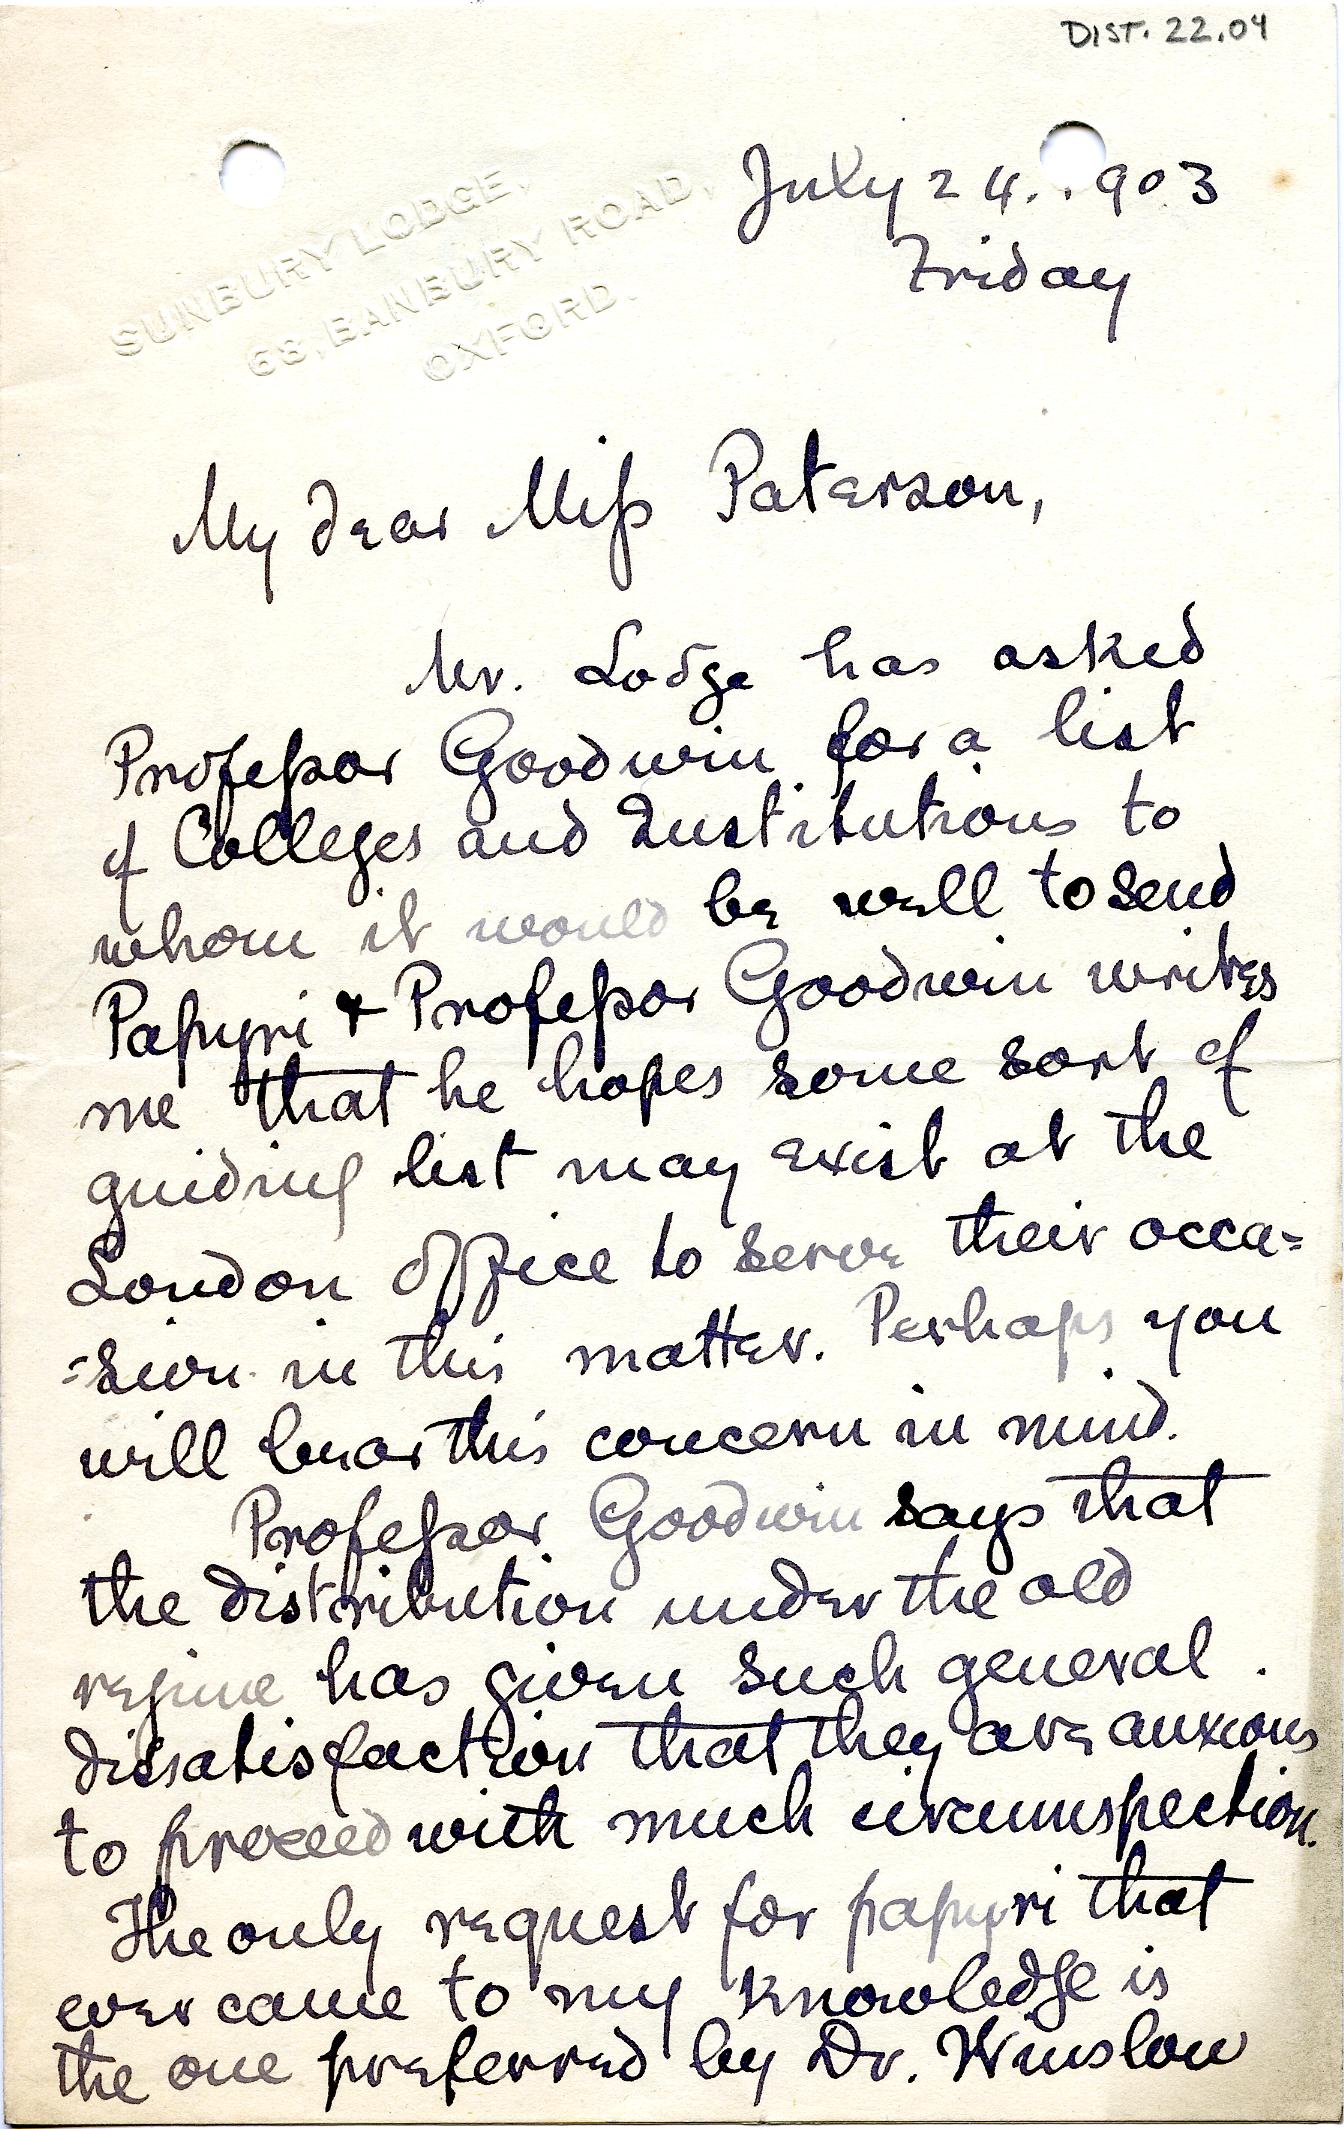 DIST. 22.04
SUNBURY LODGE,
68, BANBURY ROAD,
OXFORD.
July 24. .903
Friday
My dear Miss Paterson,
Mr. Lodge has asked
Professor Goodwin for a list
of Colleges and Institutions to
whom it would be well to send
Papyri & Professor Goodwin writes
me that he hopes some sort of
guiding list may exist at the
London office to serve their occa=
=sion in this matter. Perhaps you
will bear this concern in mind.
Professor Goodwin says that
the distribution under the old
regime has given such general
dissatisfaction that they are anxious
to proceed with much circumspection.
The only request for papyri that
ever came to my knowledge is
the one preferred by Dr. Winslow